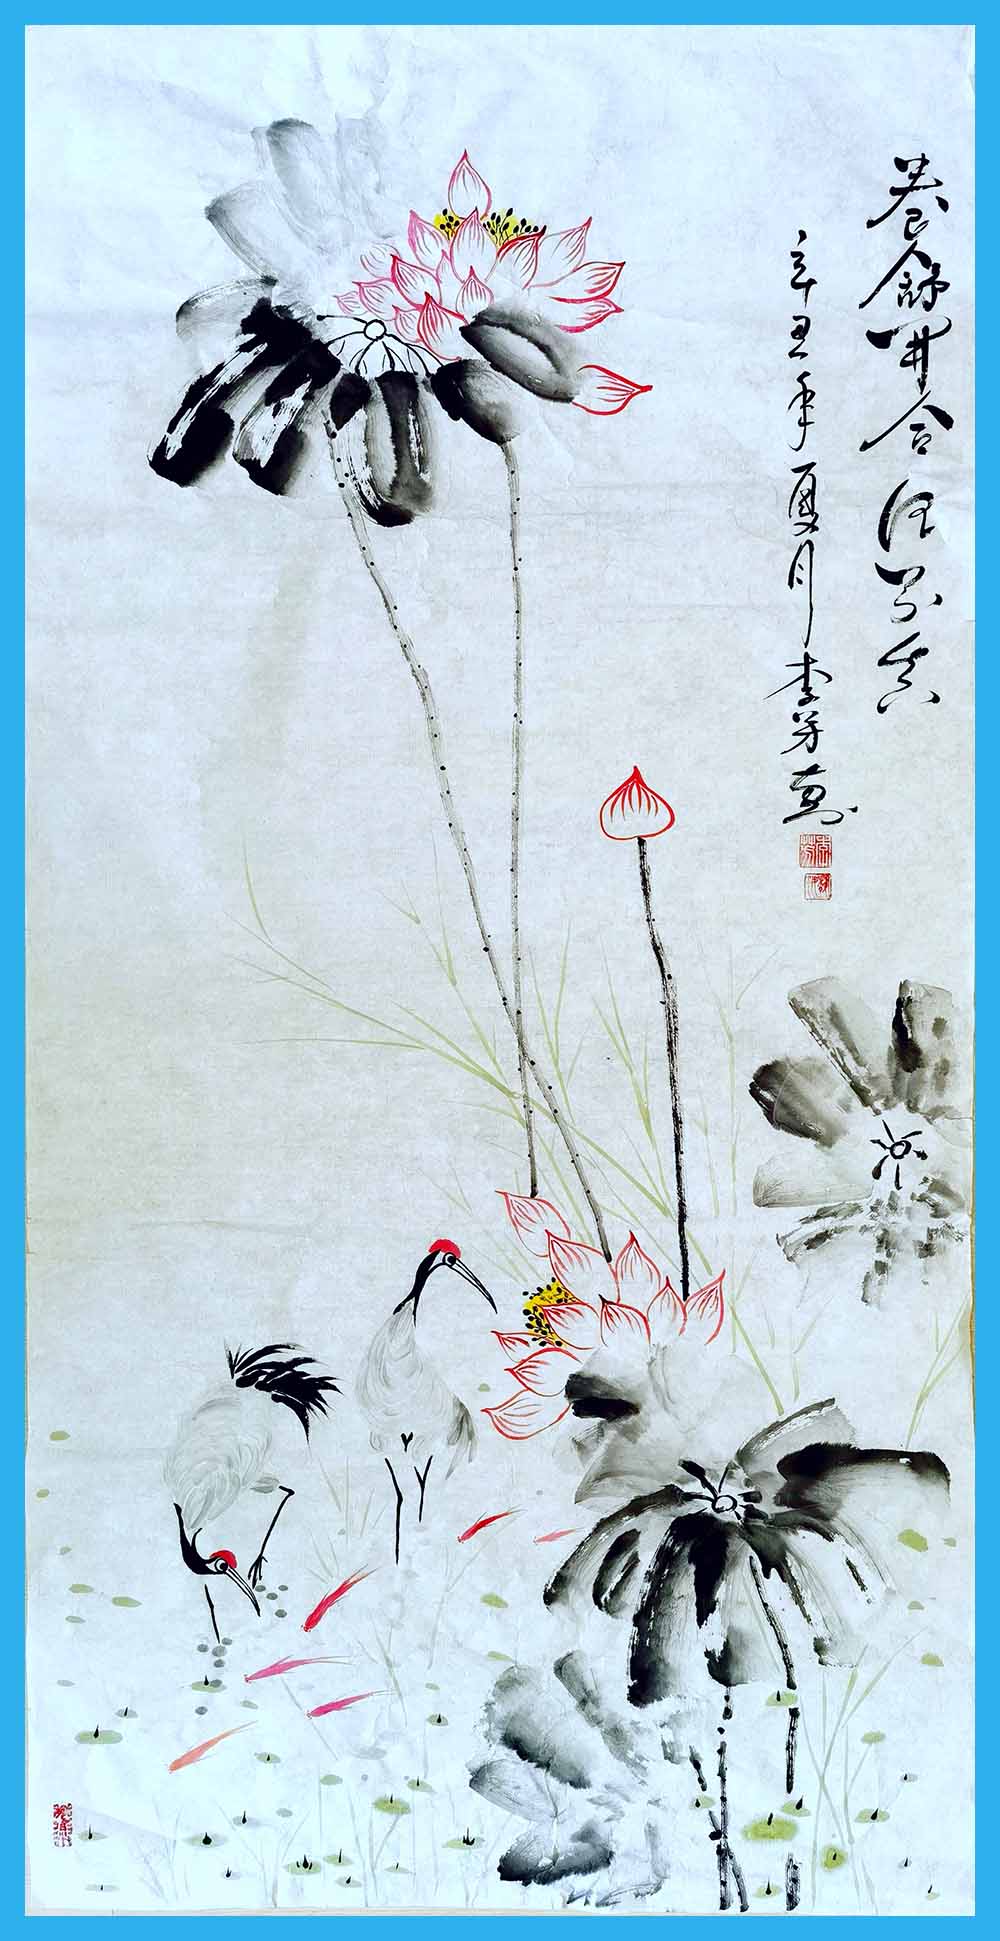 卷舒開合任天真
辛丑年夏月李芳畫